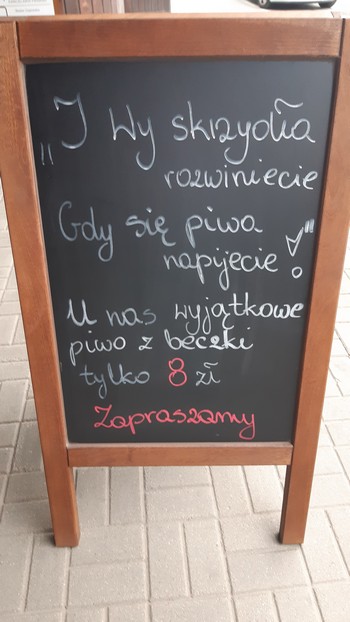 „I Wy skrzydła
rozwiniecie
Gdy się piwa
napijecie!"
U nas wyjątkowe
piwo z beczki
tylko 8 zł
Zapraszamy